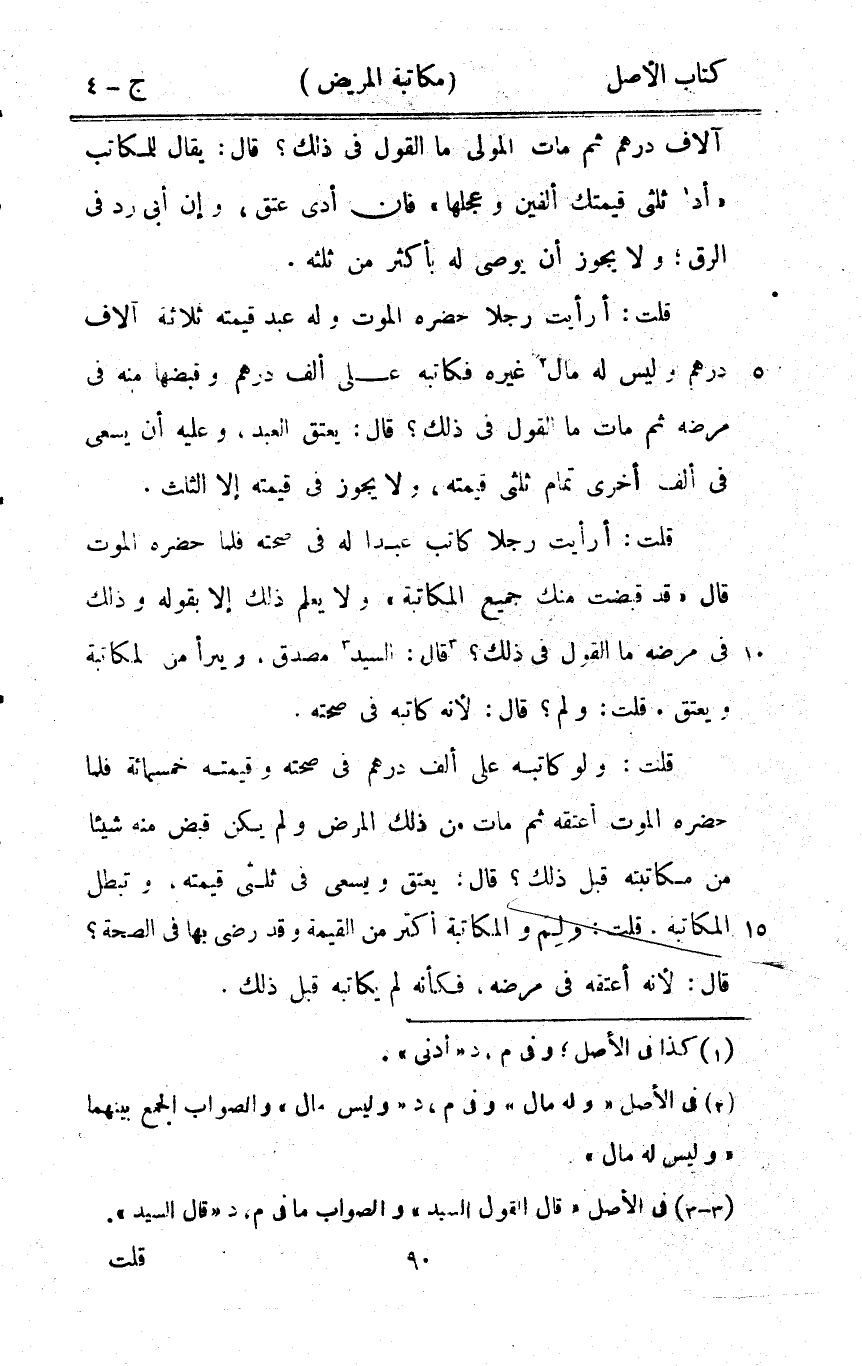 كتاب الأصل (مكاتبة المريض) ج – ٤
آلاف درهم ثم مات المولى ما القول فى ذلك؟ قال: يقال للمكاتب
«أد١ ثلثى قيمتك ألفين و عجلها» فان أدى عتق، و إن أبى رد فى
الرق؛ و لا يجوز أن يوصى له بأكثر من ثلثه .
قلت: أرأيت رجلا حضره الموت و له عبد قيمته ثلاثة آلاف
٥ درهم و ليس له مال٢ غيره فكاتبه على ألف درهم و قبضها منه فى
مرضه ثم مات ما القول فى ذلك؟ قال: يعتق العبد، و عليه أن يسعى
فى ألف أخرى تمام ثلثى قيمته، و لا يجوز فى قيمته إلا الثلث .
قلت: أرأيت رجلا كاتب عبدا له فى صحته فلما حضره الموت
قال «قد قبضت منك جميع المكاتبة» و لا يعلم ذلك إلا بقوله و ذلك
١٠ فى مرضه ما القول فى ذلك؟ ٣قال: السيد٣ مصدق، و يبرأ من لمكاتبة
و يعتق . قلت: و لم؟ قال: لأنه كاتبه فى صحته .
قلت: و لو كاتبه على ألف درهم فى صحته و قيمته خمسمائة فلما
حضره الموت أعتقه ثم مات من ذلك المرض و لم يكن قبض منه شيئا
من مكاتبته قبل ذلك؟ قال: يعتق و يسعى فى ثلثى قيمته، و تبطل
١٥ المكاتبه . قلت: و لِم و المكاتبة أكثر من القيمة و قد رضى بها فى الصحة؟
قال: لأنه أعتقه فى مرضه، فكأنه لم يكاتبه قبل ذلك .
(١) كذا فى الأصل؛ و فى م، د «أدنى» .
(٢) فى الأصل «و له مال» و فى م، د «و ليس مال» والصواب الجمع بينهما
«و ليس له مال» .
(٣-٣) فى الأصل «قال القول السيد» و الصواب ما فى م، د «قال السيد» .
٩٠ قلت